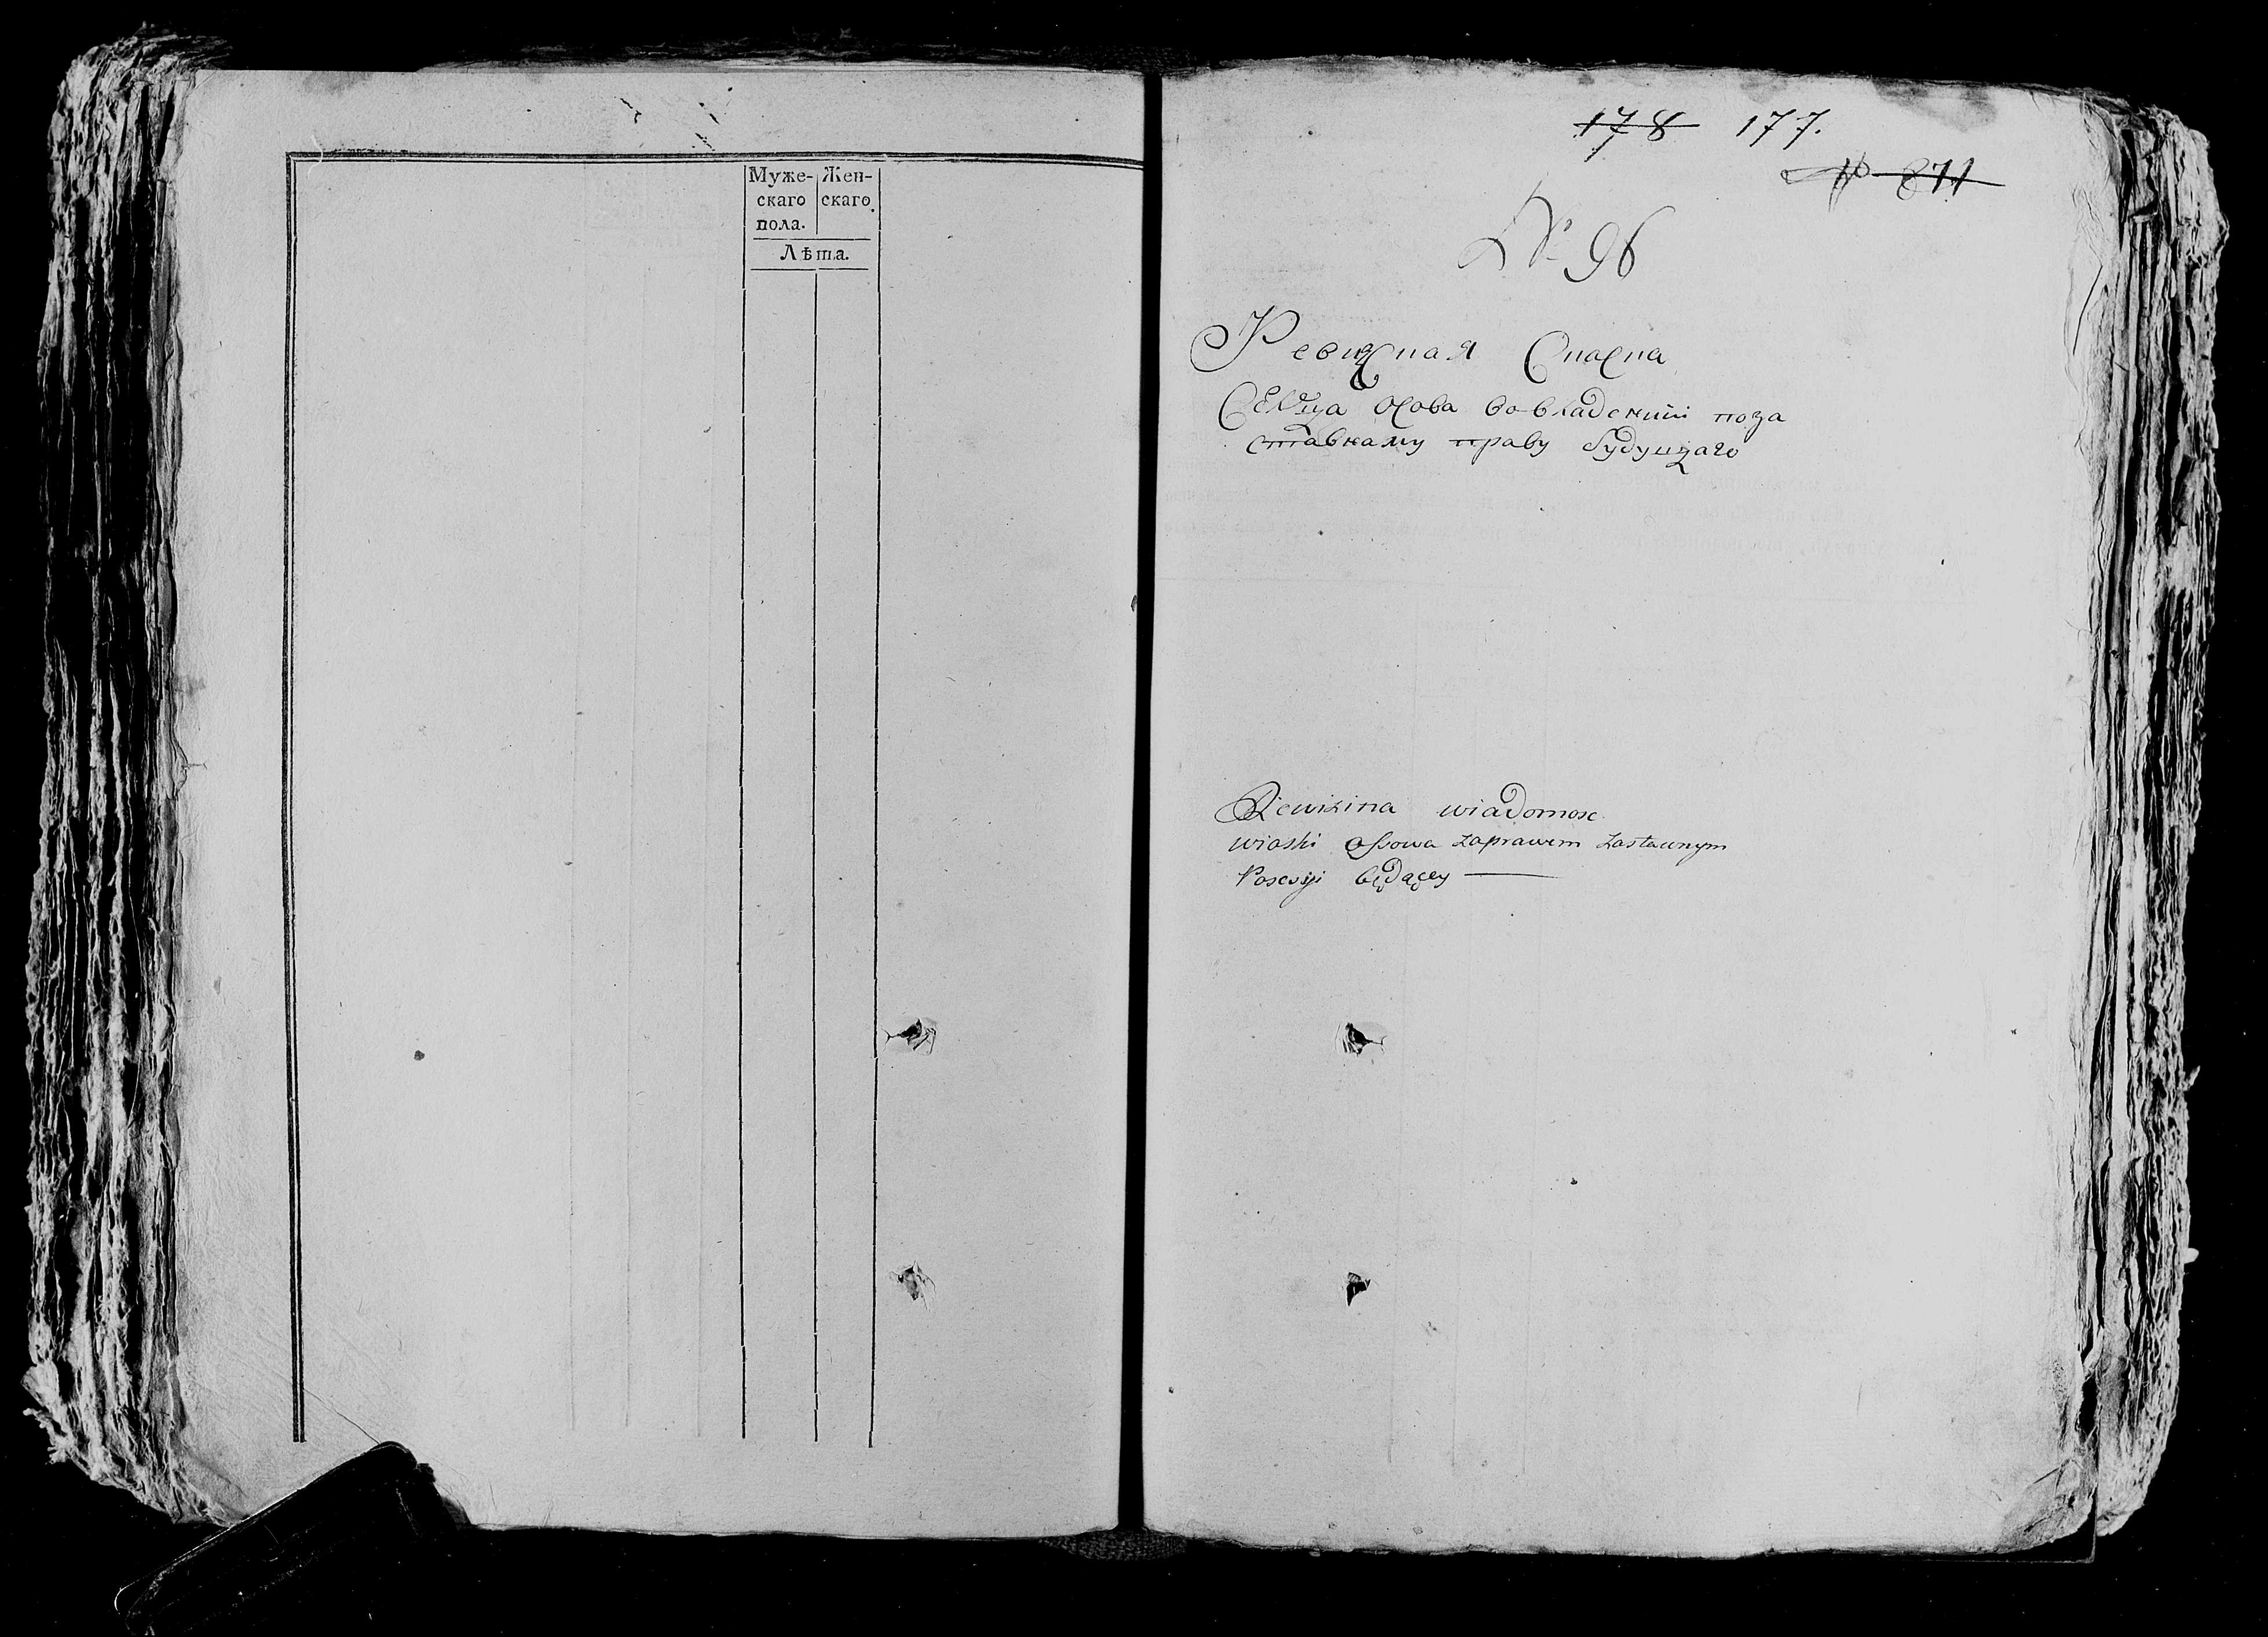 Муже- Жен-
скаго скаго
пола.
Лѣта.
178 177.
№ 871
№ 96
Ревизная Сказка
Селца Осова во владении поза
ставнаму праву будущаго
Rewizina wiadomosc
wioski Ossowa zaprawem zastawnym
Posessyi będącey —